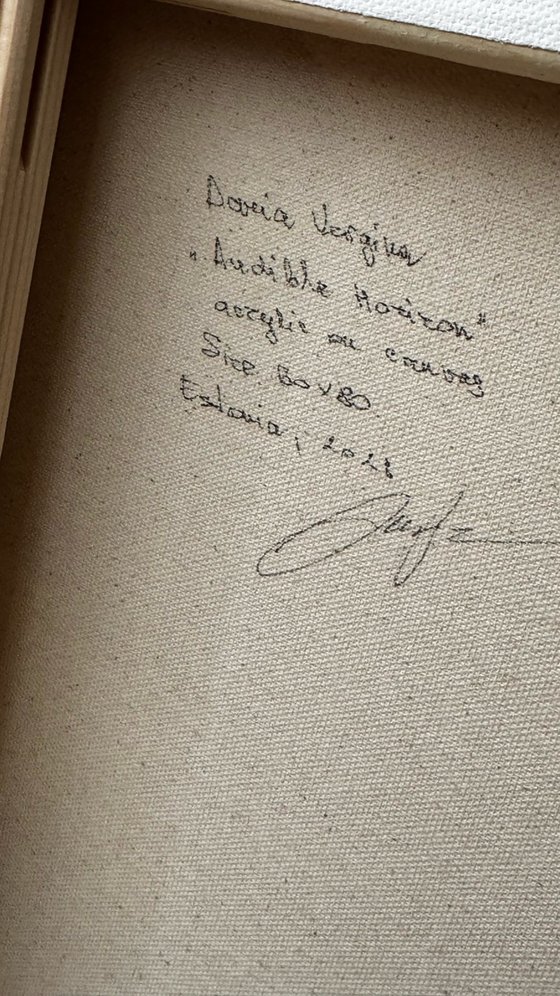 Daria Vergina
"Audible Horizon"
acrylic on canvas
Size 80x80
Estonia,